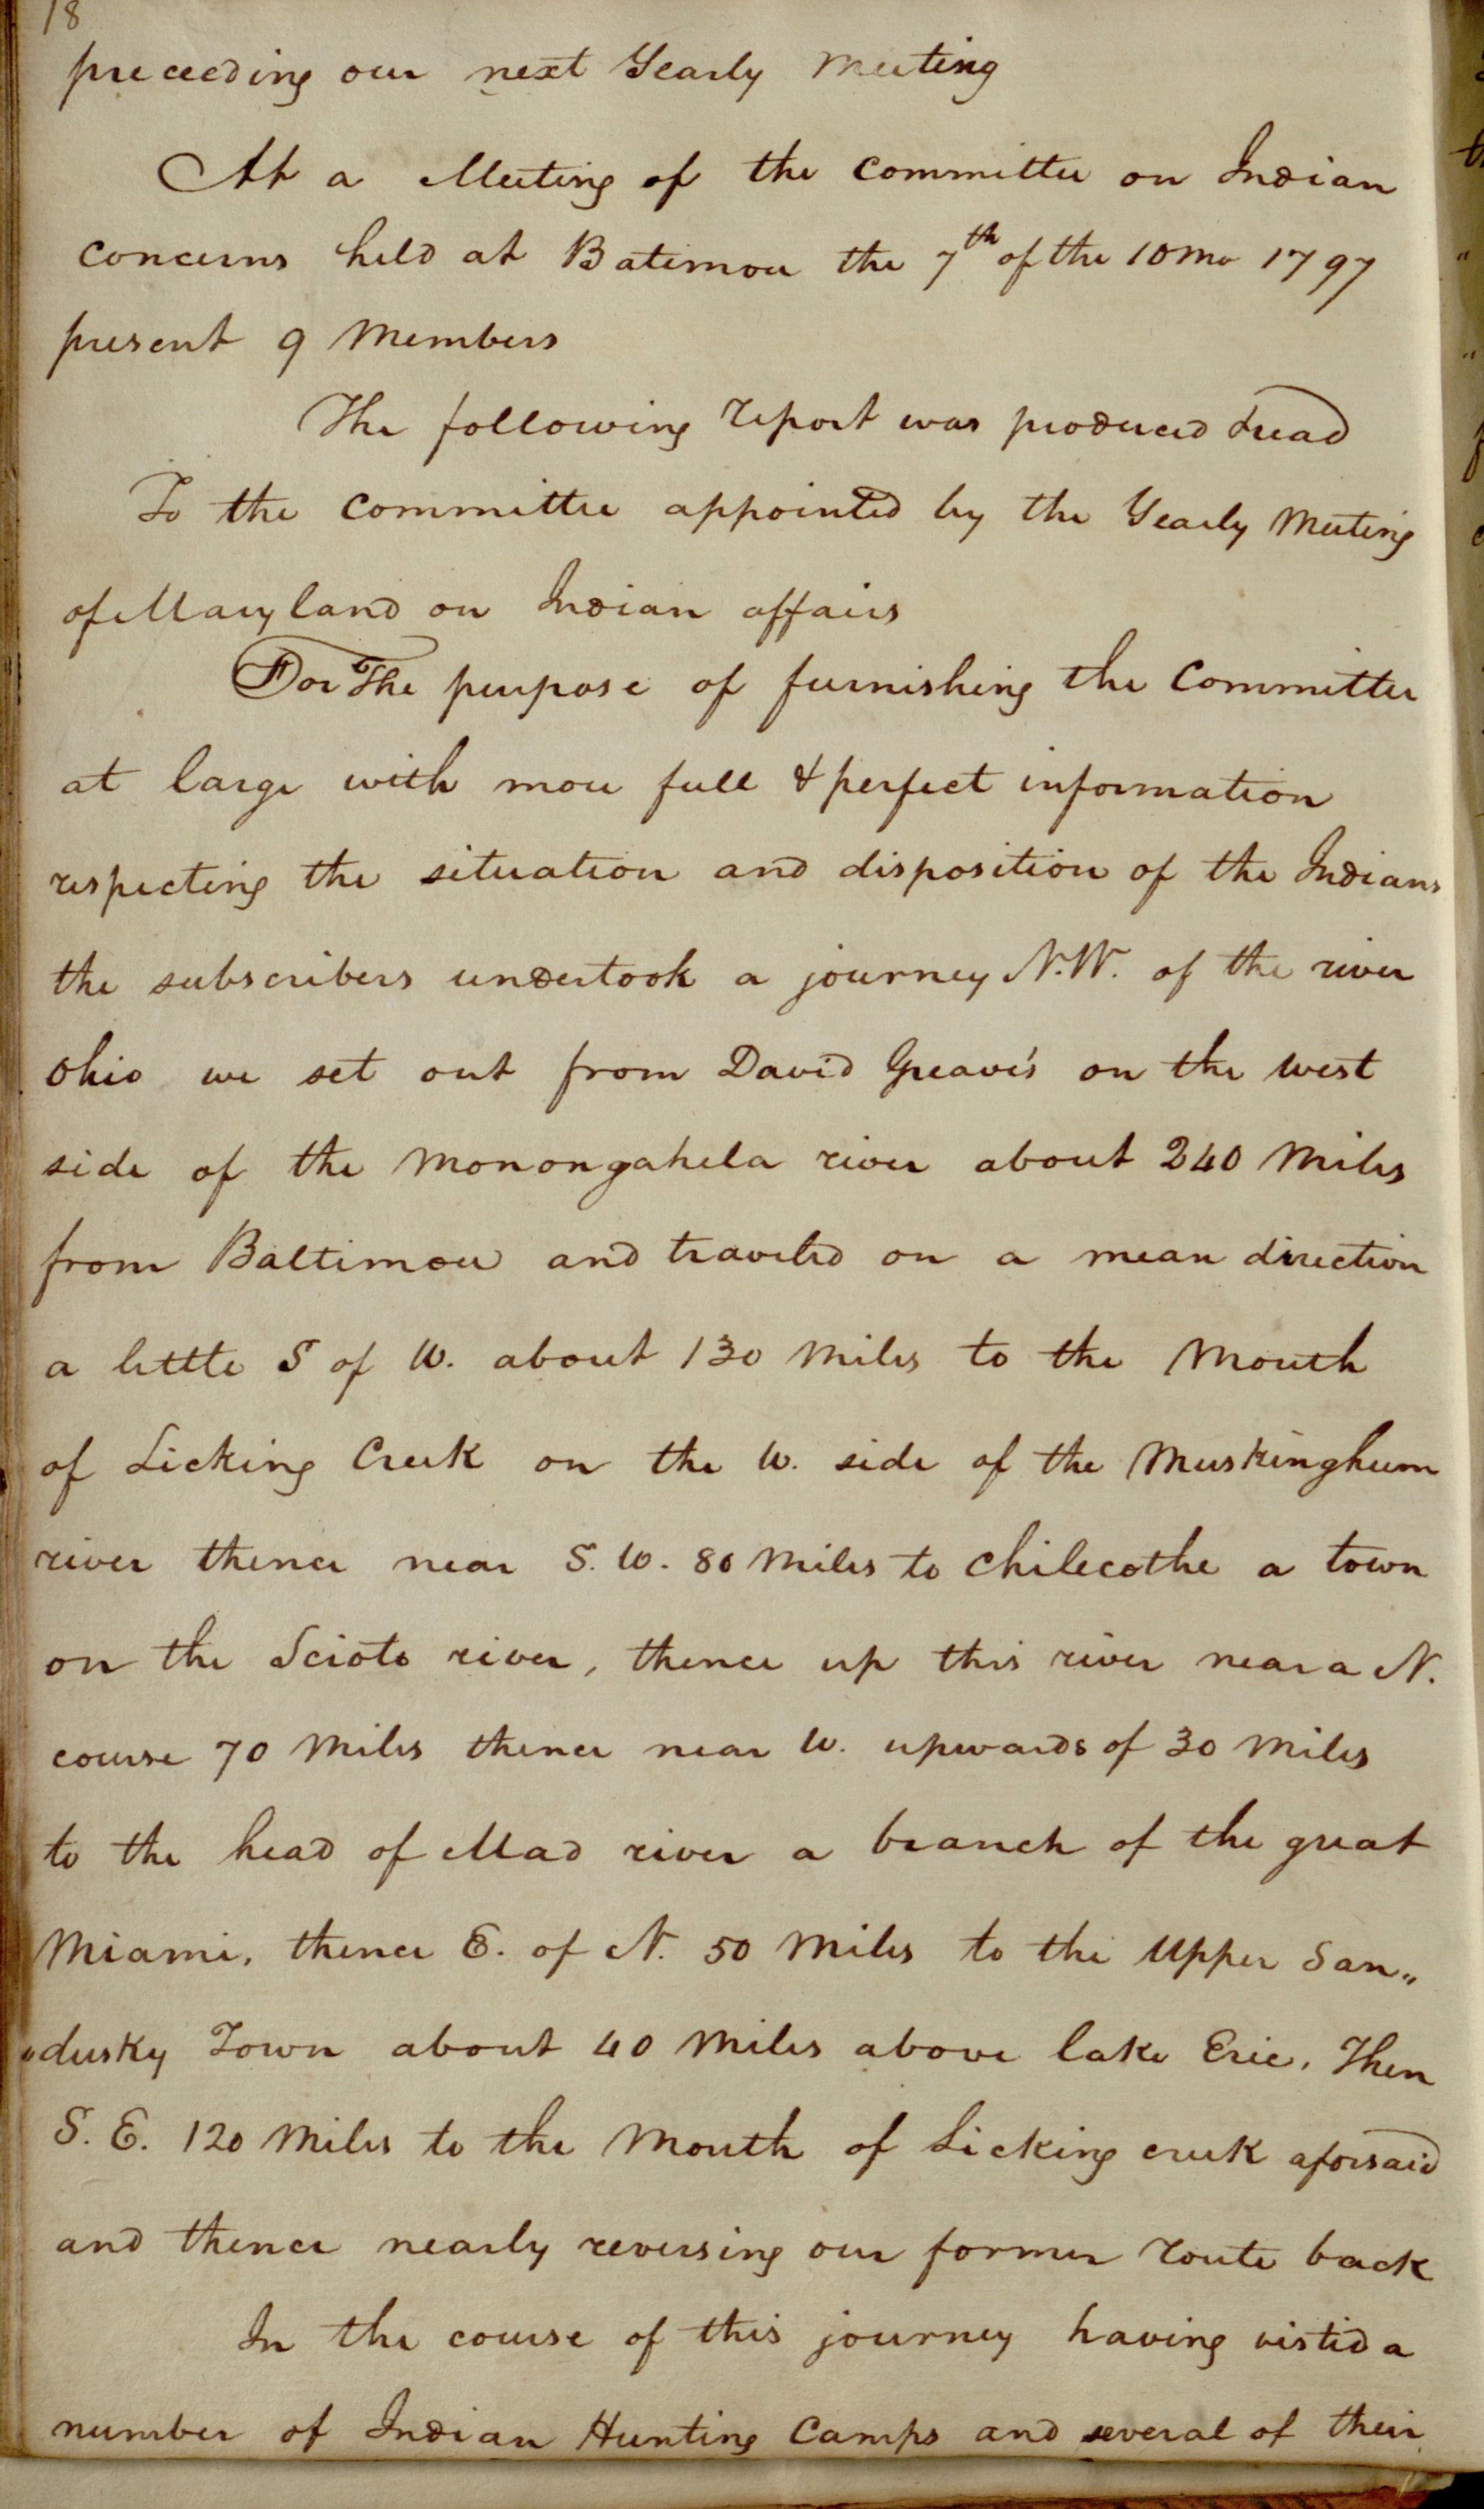 18
preceeding our next Yearly Meeting
At a Meeting of the Committee on Indian
Concerns held at Batimore the 7th of the 10 mo 1797
present 9 Members
The following report was produced & read
To the Committee appointed by the Yearly Meeting
of Maryland on Indian affairs
For The purpose of furnishing the Committee
at large with more full & perfect information
respecting the situation and disposition of the Indians
the subscribers undertook a journey N.W. of the river
Ohio we set out from David Greave's on the west
side of the Monongahela river about 240 Miles
from Baltimore and traveled on a mean direction
a little S of W. about 130 Miles to the Mouth
of Licking Creek on the W. side of the Muskinghum
river thence near S. W. 80 Miles to Chilecothe a town
on the Scioto river, thence up this river near a N.
course 70 Miles thence near W. upwards of 30 Miles
to the head of Mad river a branch of the great
Miami, thence E. of N. 50 Miles to the Upper San„
„dusky Town about 40 Miles above lake Erie. Then
S. E. 120 Miles to the Mouth of Licking creek aforsaid
and thence nearly reversing our former route back
In the course of this journey having visted a
number of Indian Hunting Camps and several of their